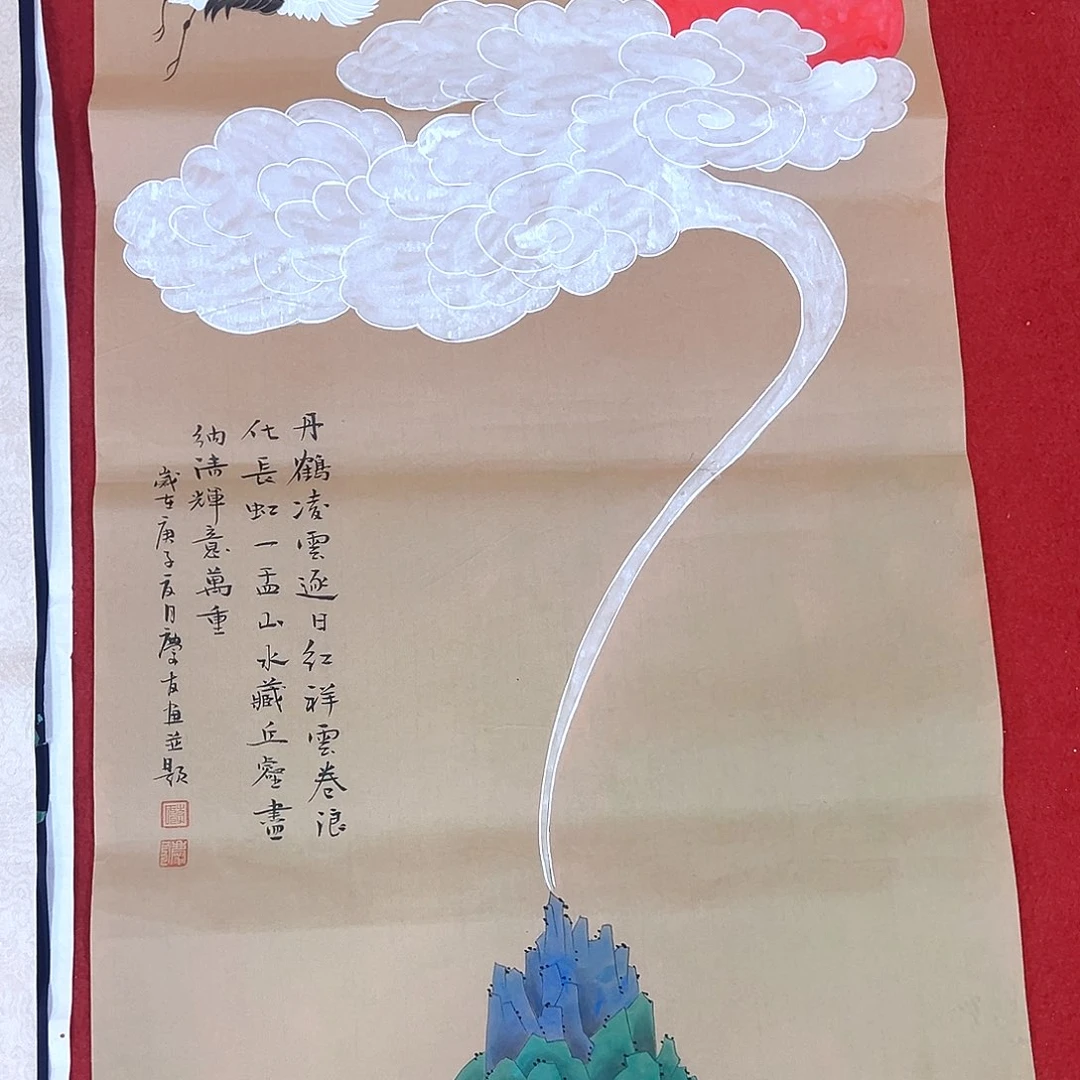 丹鶴凌雲逐日紅祥雲卷浪
化長虹一盂山水藏丘壑盡
納清輝意萬重
歲在庚子夏月慶友畫並題